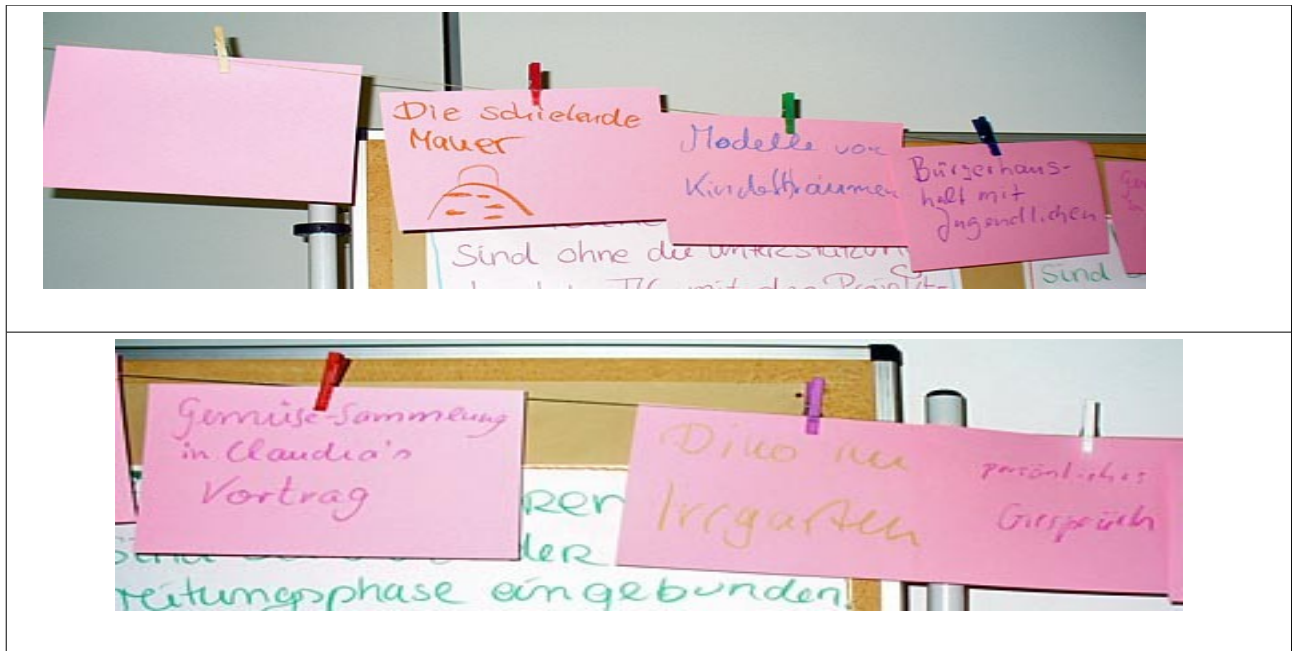 Die schielende
Mauer
Modelle von
Kinderträumen
Bürgerhaus-
halt mit
Jugendlichen
Sind ohne die Unterstützung
mit den Projekt-
Sind
Gemüse-Sammlung
in Claudia's
Vortrag
Dino im
Irrgarten
persönliches
Gespräch
der
reitungsphase eingebunden.